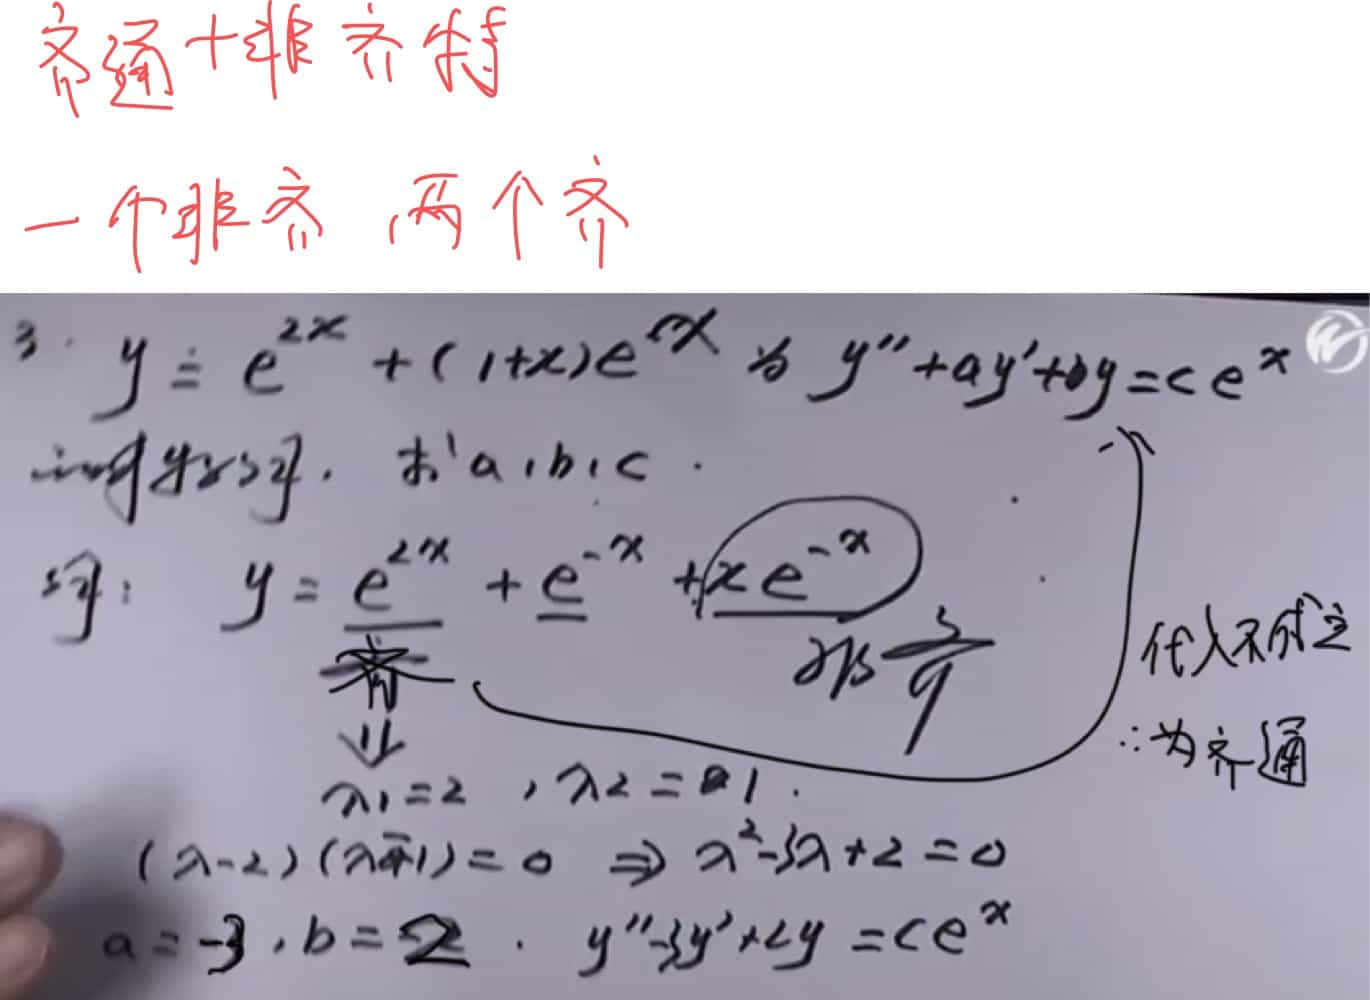 齐通+非齐特
一个非齐,两个齐
3. y = e^{2x} + (1+x)e^{x} 为 y''+ay'+by=ce^{x}
求 a, b, c.
解: y = e^{2x} + e^{-x} + xe^{-x}
齐 非齐
代入不成立
∴为齐通
λ1=2, λ2=1.
(λ-2)(λ-1)=0 ⇒ λ²-3λ+2=0
a=-3, b=2. y''-3y'+2y=ce^{x}